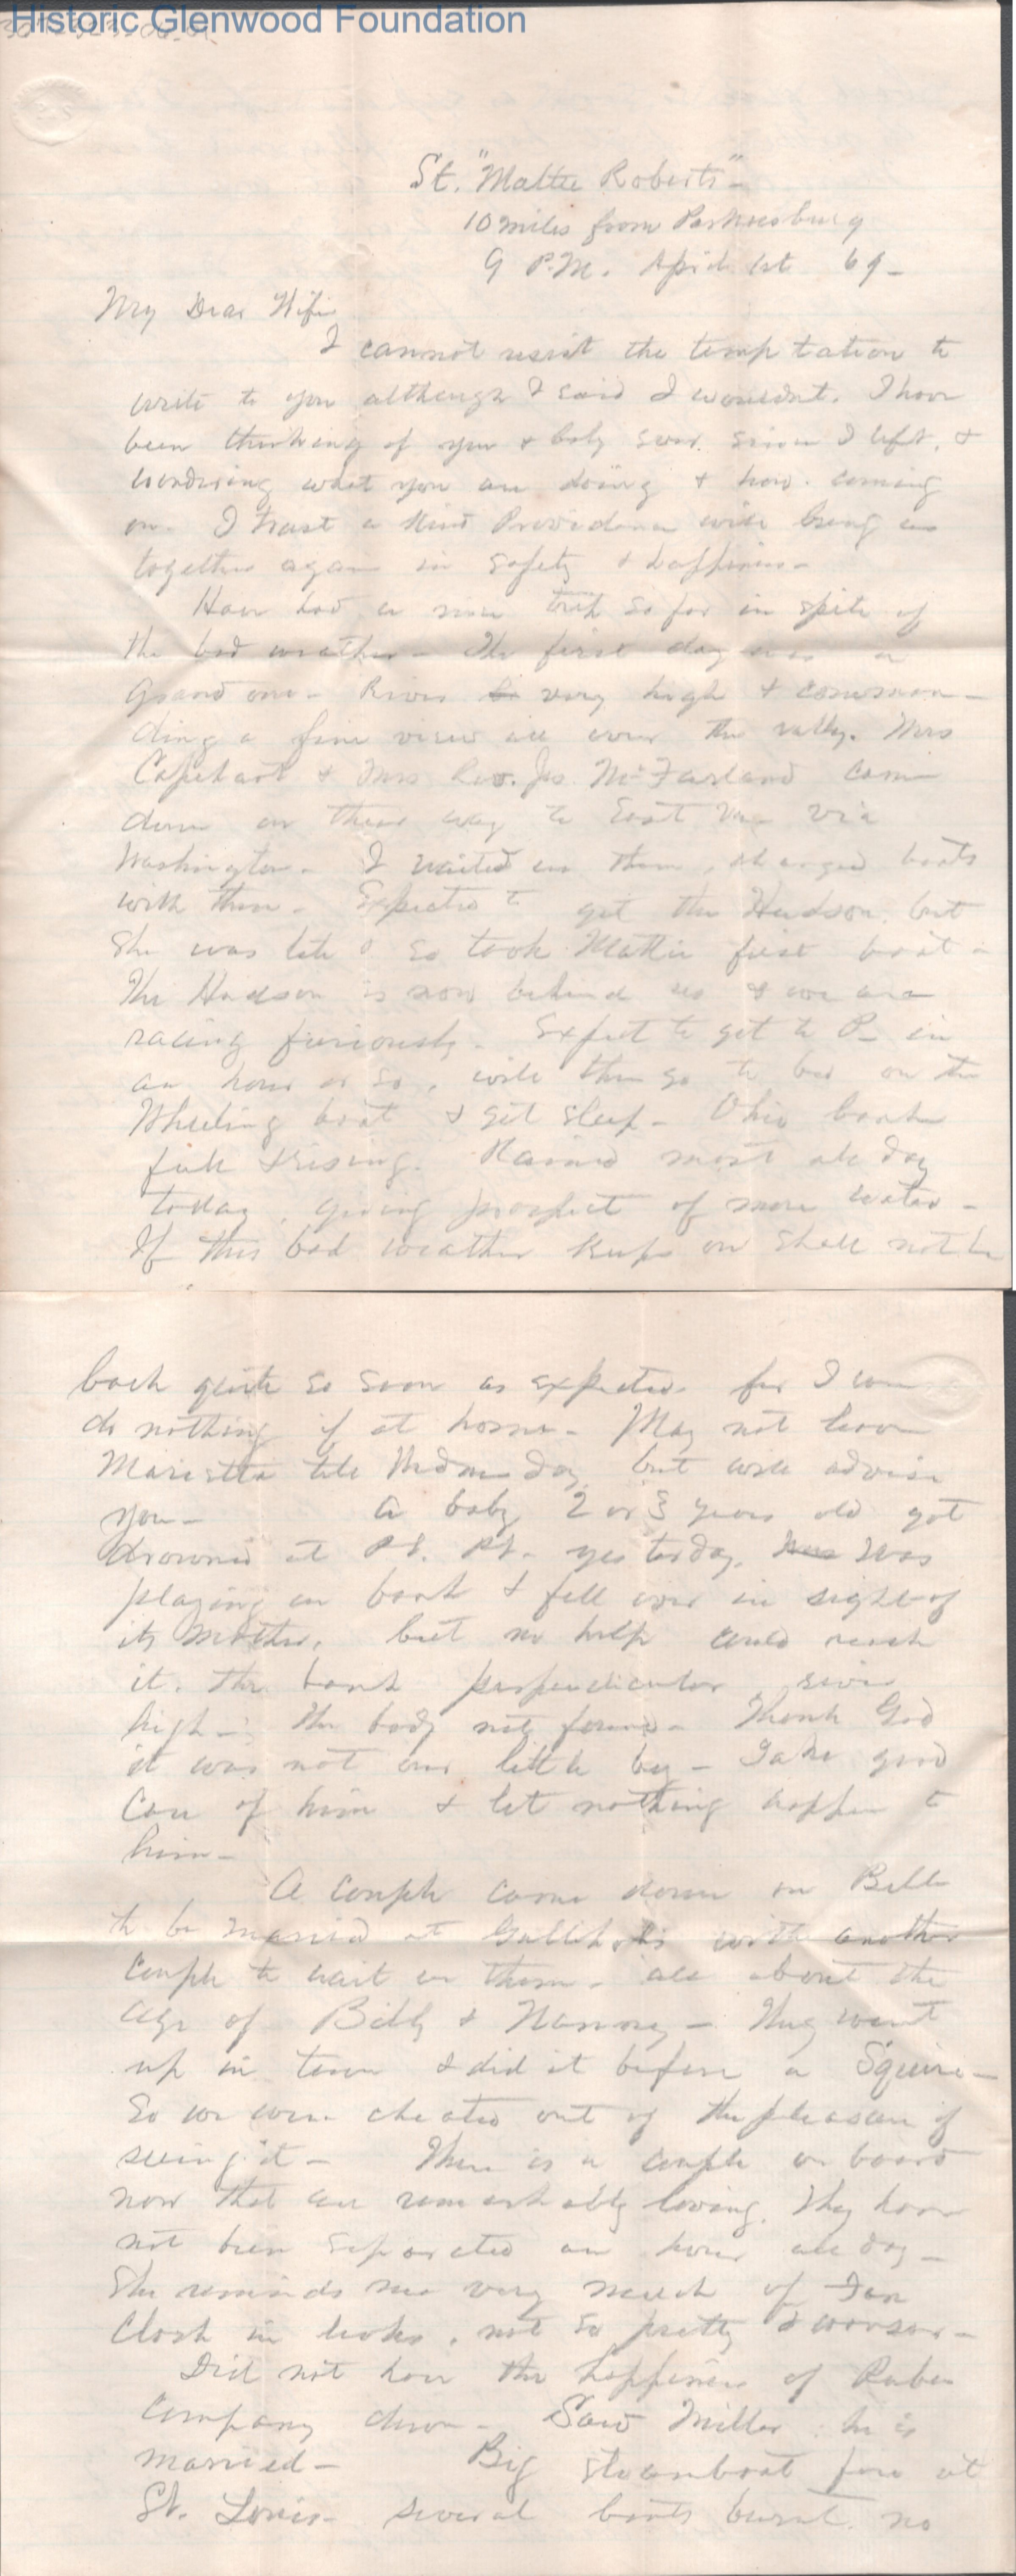 Historic Glenwood Foundation
St. "Mattie Roberts"-
10 miles from Parkersburg
9 P.M. April 1st 69-
My Dear Wife
I cannot resist the temptation to
write to you although I said I wouldnt. I have
been thinking of you & baby ever since I left, &
wondering what you are doing & how coming
on. I trust a kind Providence will bring us
together again in safety & happiness-
Have had a nice trip so far in spite of
the bad weather- The first day was a
Grand one- River very high & comman-
ding a fine view all over the valley. Mrs
Capehart & Mrs Rev. Jas. McFarland came
down on their way to East Va via
Washington- I waited on them, changed boats
with them- Expected to get the Hudson, but
she was late & so took Mattie first boat-
The Hudson is now behind us & we are
racing furiously- Expect to get to P- in
an hour or so, will then go to bed on the
Wheeling boat & get sleep- Ohio bank
full & rising. Rained most all day
today, giving prospect of more water-
If this bad weather keeps on shall not be
back quite so soon as expected for I can
do nothing if at home- May not leave
Marietta till Wednesday, but will advise
you- A baby 2 or 3 years old got
drowned at Pt. Pt. yesterday. Was
playing on bank & fell over in sight of
its mother, but no help could reach
it. The bank perpendicular, river
high- The body not found- Thank God
it was not our little boy- Take good
care of him & let nothing happen to
him-
A couple came down on Belle
to be married at Gallipolis with another
couple to wait on them- all about the
age of Billy & Nanny- They went
up in town & did it before a Squire-
So we were cheated out of the pleasure of
seeing it- There is a couple on board
now that are remarkably loving. They have
not been separated an hour all day-
She reminds me very much of
in looks, not so pretty &
Did not have the happiness of
company down- Saw Miller he is
married- Big steamboat fire at
St. Louis- several boats burnt no